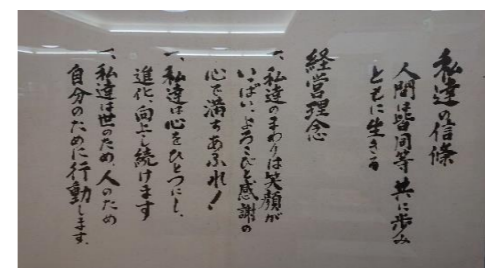 私達の信條
人間は皆同等 共に歩み
ともに生きる
経営理念
一、私達のまわりは笑顔が
いっぱい、よろこびと感謝の
心で満ちあふれ！
一、私達は心をひとつにし、
進化、向上し続けます
一、私達は世のため、人のため
自分のために行動します。